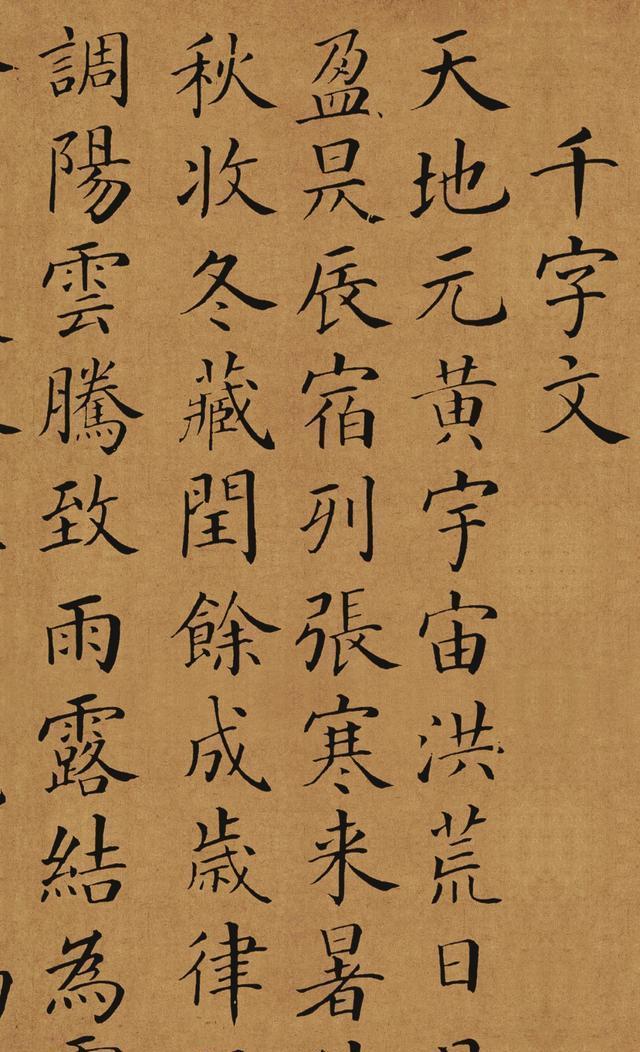 千字文
天地元黄宇宙洪荒日
盈昃辰宿列張寒来暑
秋收冬藏閏餘成歲律
調陽雲騰致雨露結為